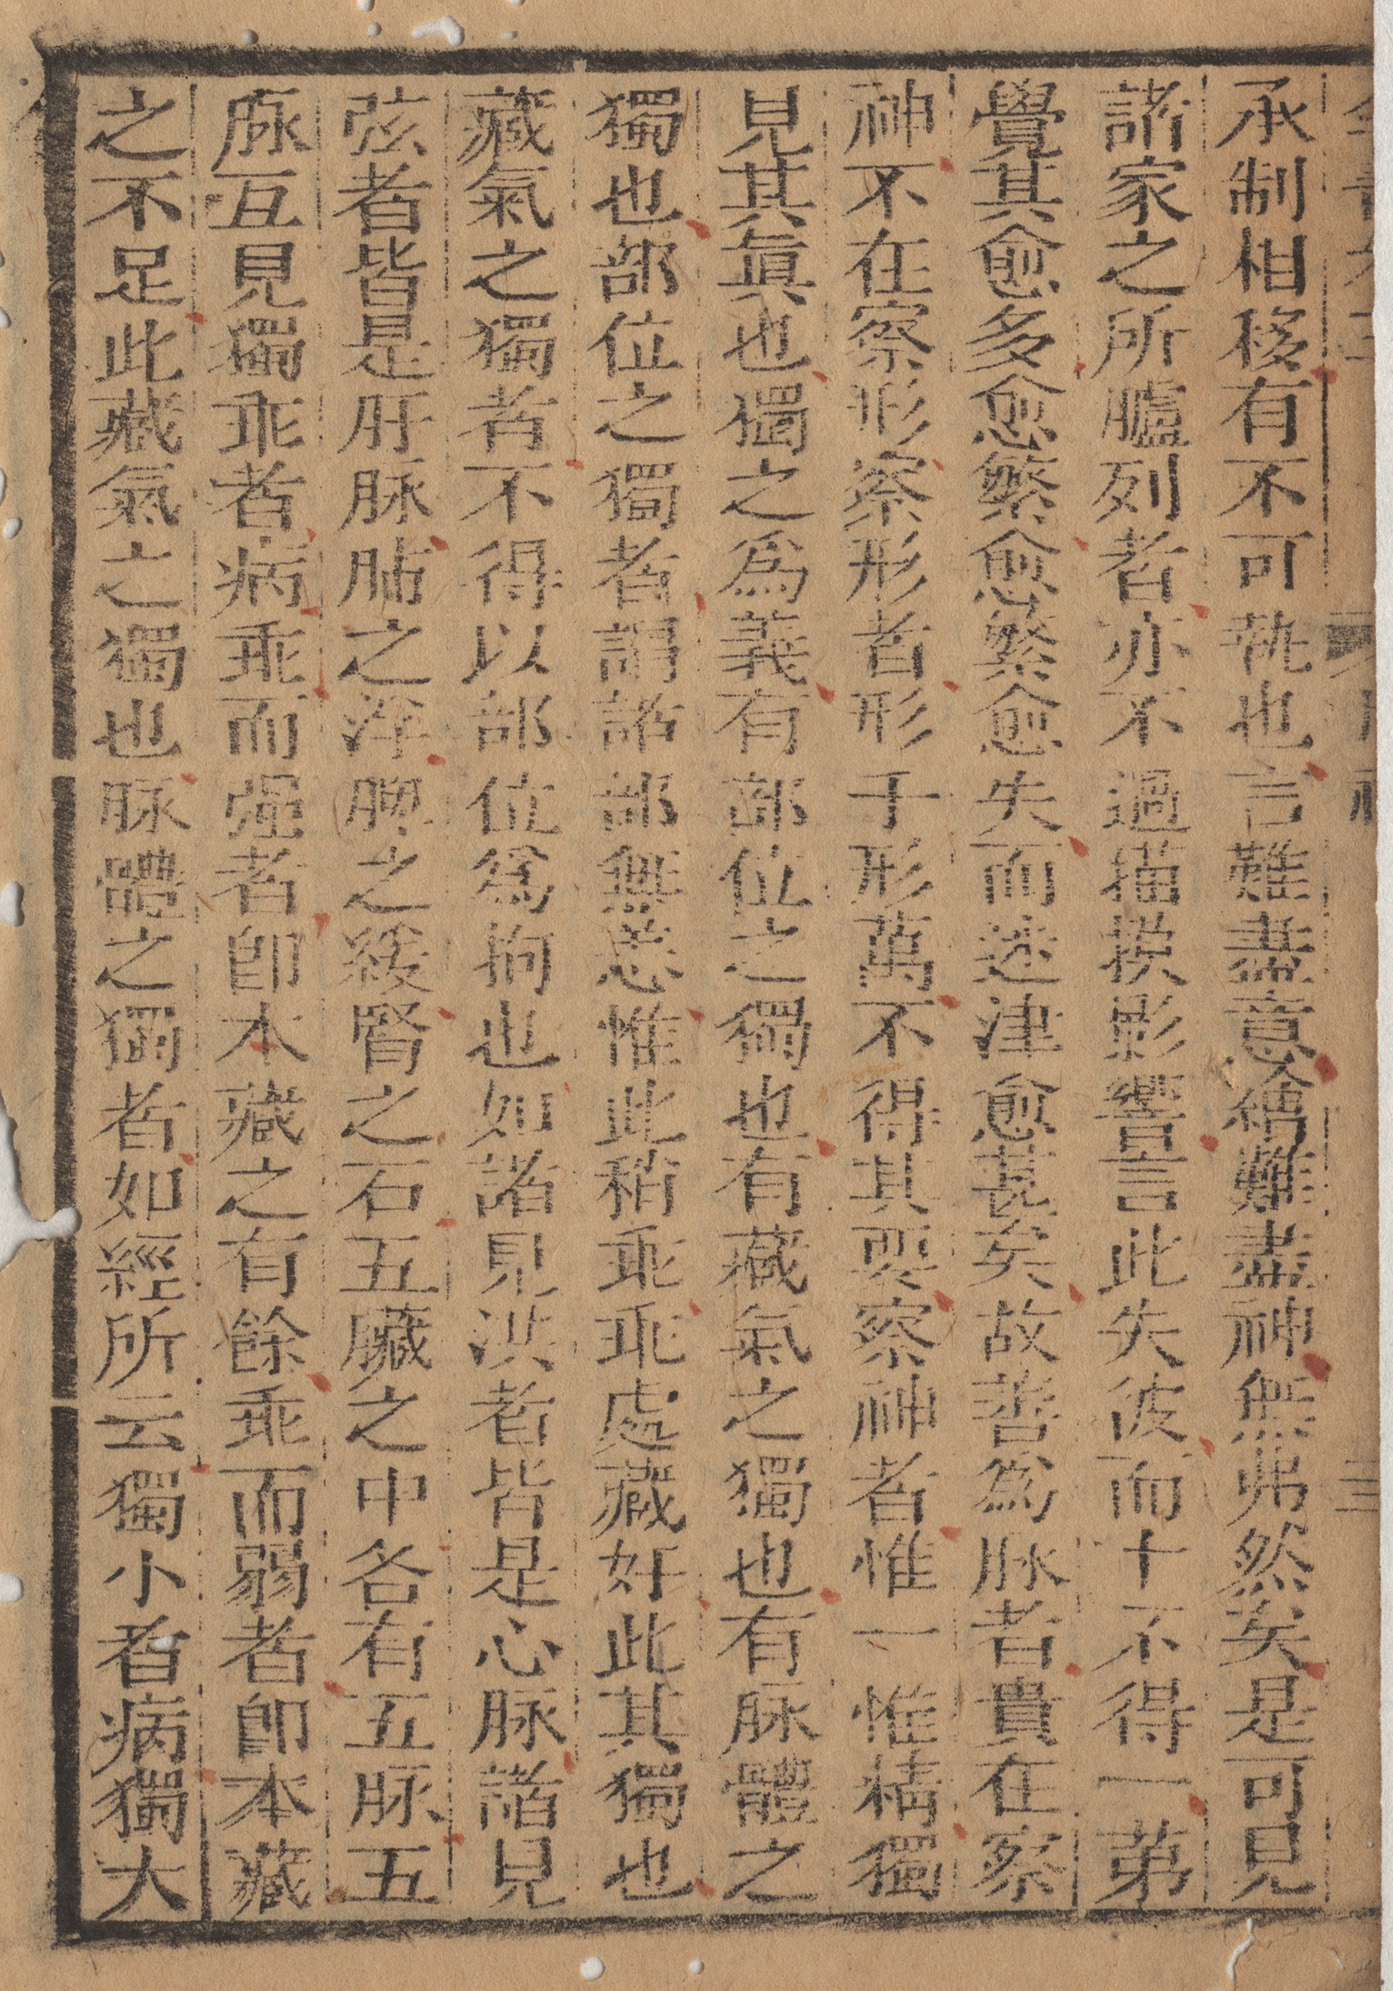 承制相移有不可執也言難盡意繪難盡神無弗然矣是可見
諸家之所臚列者亦不過描摸影響言此失彼而十不得一第
覺其愈多愈繁愈繁愈失而迷津愈甚矣故善為脉者貴在察
神不在察形察形者形千形萬不得其要察神者惟一惟精獨
見其眞也獨之為義有部位之獨也有藏氣之獨也有脉體之
獨也部位之獨者謂諸部無恙惟此稍乖乖處藏奸此其獨也
藏氣之獨者不得以部位為拘也如諸見洪者皆是心脉諸見
弦者皆是肝脉肺之浮脾之緩腎之石五臟之中各有五脉五
脉互見獨乖者病乖而强者卽本藏之有餘乖而弱者卽本藏
之不足此藏氣之獨也脉體之獨者如經所云獨小者病獨大